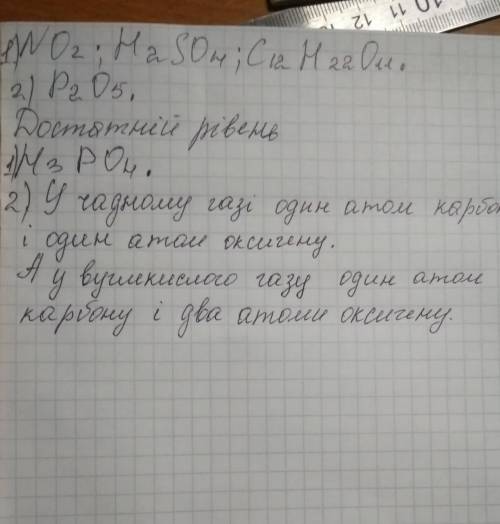 1) NO2; H2SO4; C12H22O11.
2) P2O5.
Достатній рівень
1) H3PO4.
2) У чадному газі один атом карбо
і один атом оксигену.
А у вуглкислого газу один атом
карбону і два атоми оксигену.
10 11 12